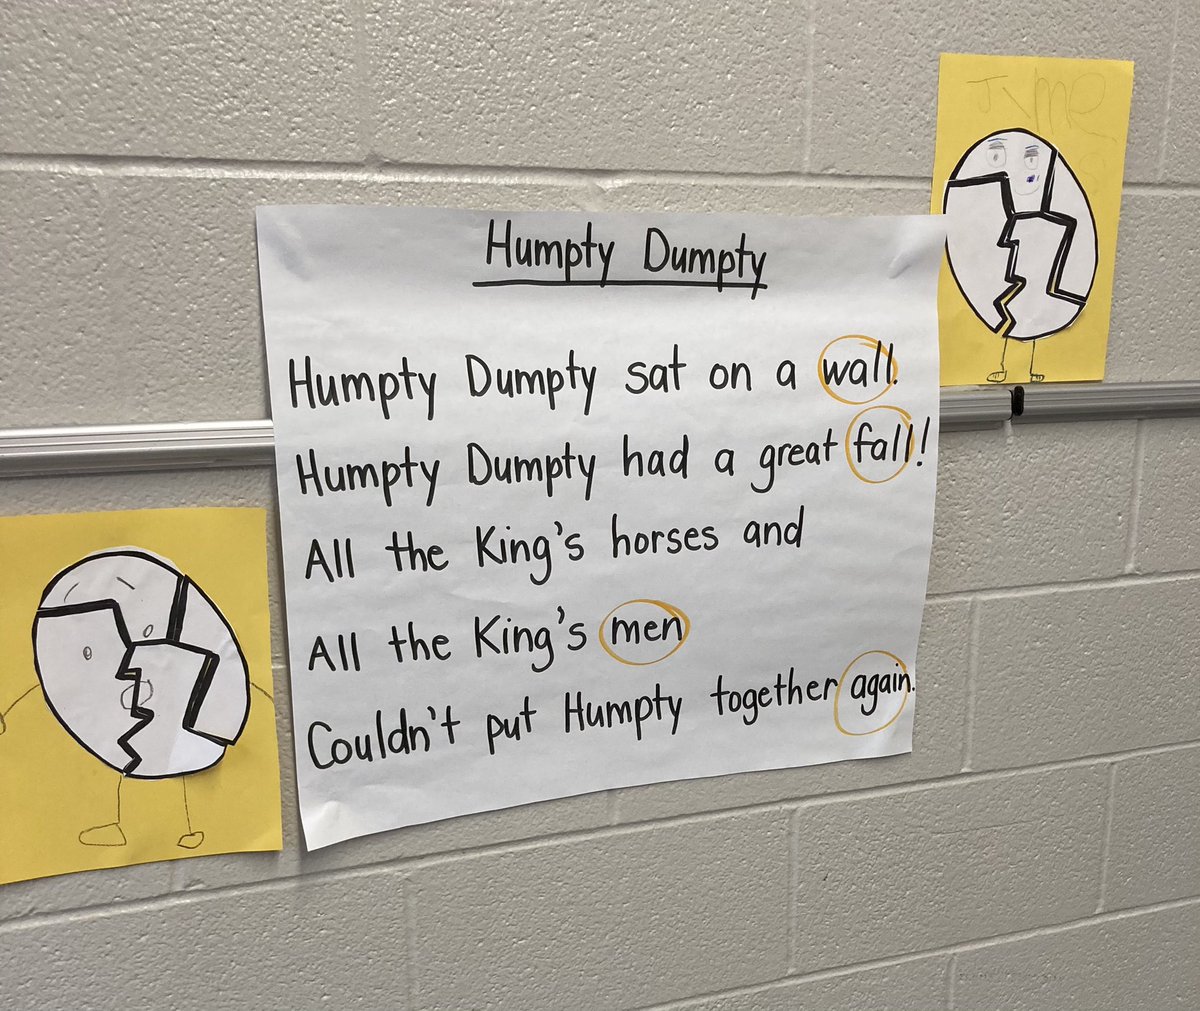 Humpty Dumpty
Humpty Dumpty sat on a wall.
Humpty Dumpty had a great fall!
All the King's horses and
All the King's men
Couldn't put Humpty together again.